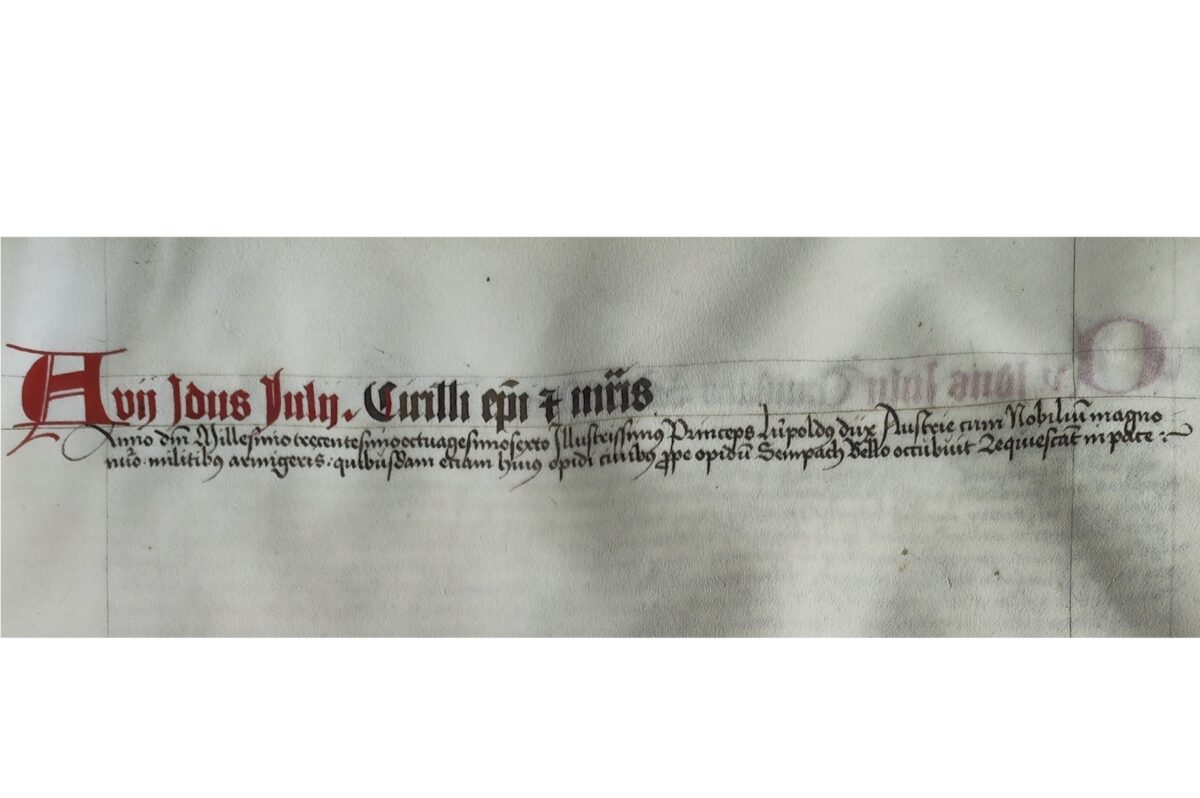 A vij Idus Julij. Cirilli epi̅ ⁊ mr̅is
Anno dn̅i Millesimo trecentesimooctuagesimosexto Illustrissimus Princeps Lu̅poldus dux Austrie cum Nobiliu̅ magno
nu̅ro militibus armigeris : quibusdam etiam huius opidi civibus prope opidu̅ Sempach bello occubuit Requiescat in pace :~